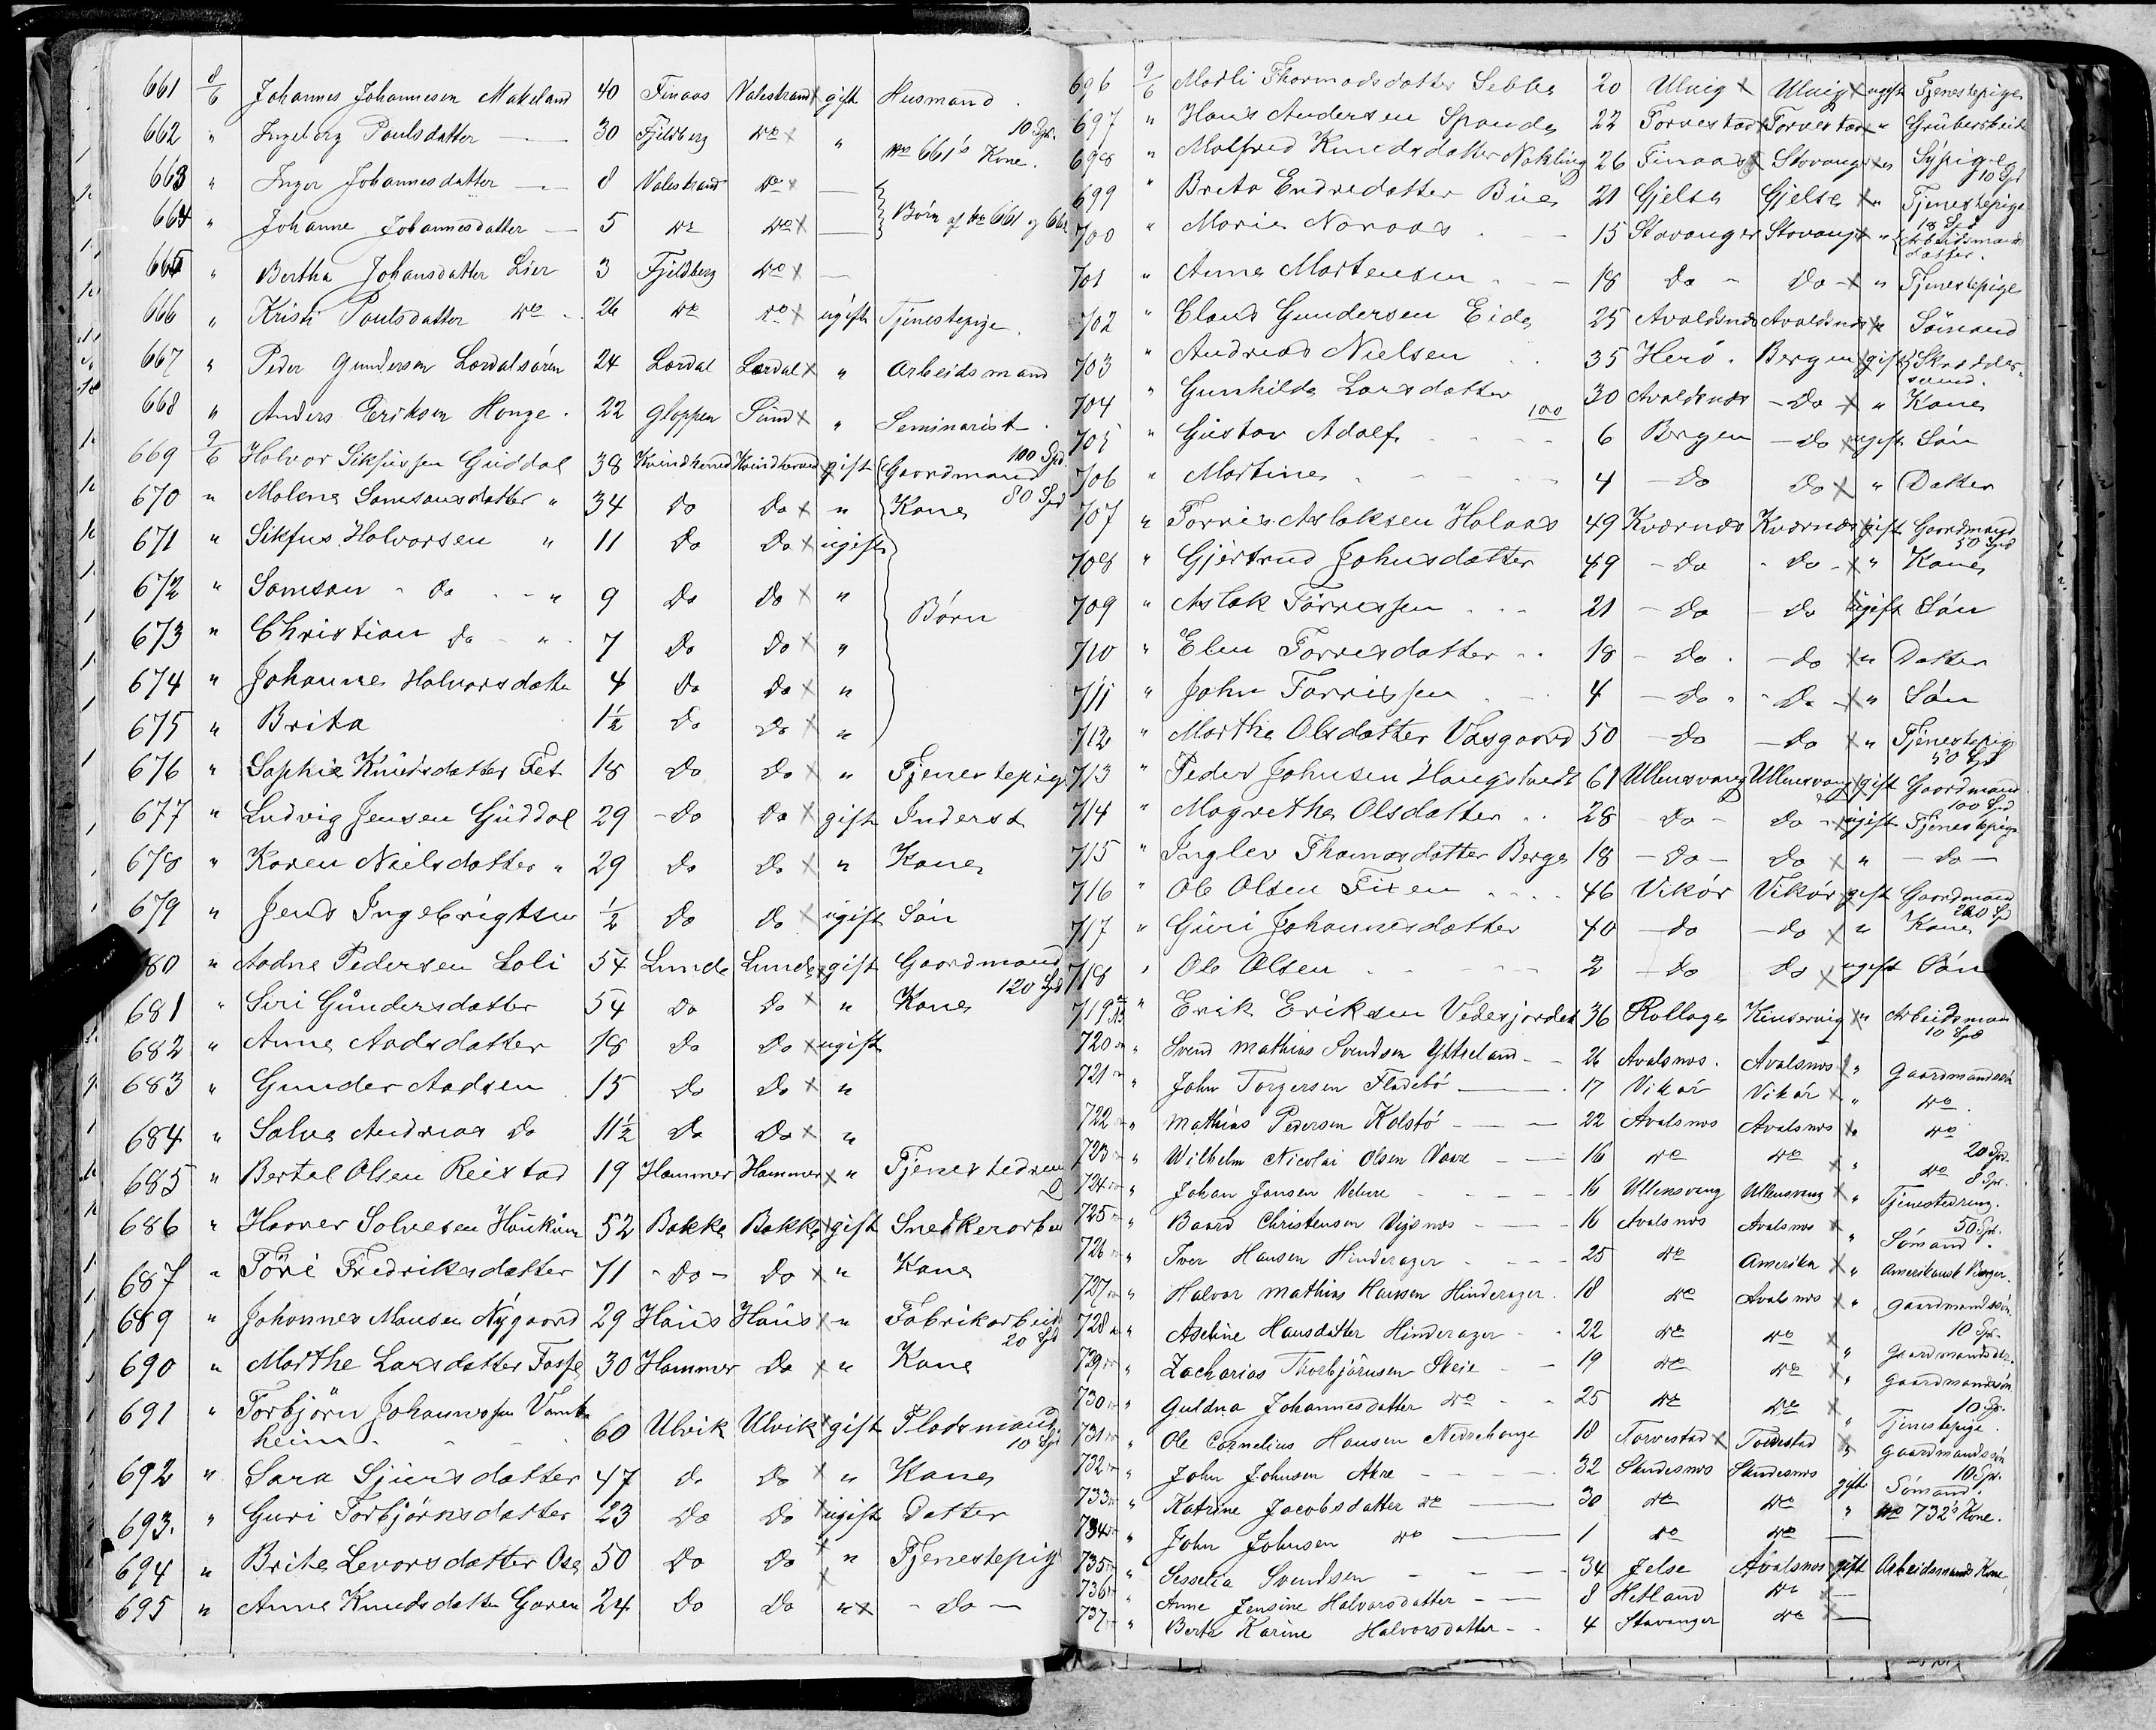 661 8/6 Johannes Johannesen Makeland 40 Finaas Valestrand x gift Husmand
662 " Ingeborg Poulsdatter — 30 Fjeldberg do x " 10 Spd. No 661's Kone.
663 " Inger Johannesdatter — 8 Valestrand do x —
664 " Johanne Johannesdatter — 5 do do x — Börn af No 661 og 662
665 " Bertha Johansdatter Lier 3 Fjeldberg do x —
666 " Kristi Poulsdatter do 26 do do x ugift Tjenestepige.
667 " Peder Gundersen Lærdalsören 24 Lærdal Lærdal x " Arbeidsmand
668 " Anders Eriksen Honge. 22 Gloppen Sund x " Seminarist.
669 9/6 Halvor Sikfussen Guddal 38 Kvindherred Kvindherred gift Gaardmand 100 Spd.
670 " Malene Samsonsdatter " 34 do do x " Kone 80 Spd
671 " Sikfus Halvorsen " 11 do do x ugift
672 " Samson - do - " 9 do do x "
673 " Christian do - " 7 do do x " Börn
674 " Johanne Halvorsdatte 4 do do x "
675 " Brita 1½ do do x "
676 " Sophie Knudsdatter Fet 18 do do x " Tjenestepige
677 " Ludvig Jensen Guddal 29 - do do x gift Inderst
678 " Karen Nielsdatter " 29 do do x " Kone
679 " Jens Ingebrigtsen ½ do do x ugift Sön
680 " Aadne Pedersen Loli 54 Lunde Lunde x gift Gaardmand
681 " Siri Gundersdatter 54 do do x " Kone 120 Spd
682 " Anne Aadsdatter 18 do do x ugift
683 " Gunder Aadsen 15 do do x "
684 " Salve Andreas do 11½ do do x "
685 " Bertel Olsen Reistad 19 Hammer Hammer x " Tjenestedreng
686 " Haaver Solvesen 52 Bakke Bakke x gift Snedkerarbei
687 " Töri Fredriksdatter 71 - do - do x " Kone
689 " Johannes Monsen Nygaard 29 Haus Haus x " Fabrikarbeid
690 " Marthe Larsdatter Fosse 30 Hammer do x " Kone 20 Spd
691 " Torbjörn Johannessen Vam
heim 60 Ulvik Ulvik x gift Pladsmand 10 Spd
692 " Sara Sjursdatter 47 do do x " Kone
693. " Guri Torbjörnsdatter 23 do do x ugift Datter
694 " Brita Levorsdatter Ose 50 do do x " Tjenestepige
695 " Anne Knudsdatter Garen 24 do do " x - do -
696 9/6 Marli Thormodsdatter Sebbe 20 Ulvig x Ulvig x ugift Tjenestepige
697 " Hans Andersen Spande 22 Torvestad Torvestad x " Grubearbeid
698 " Malfred Knudsdatter Nokling 26 Finaas Stavanger x " Sypige 10 Spd
699 " Brita Endredatter Bue 21 Gjelse Gjelse x " Tjenestepige
700 " Marie Noraas 15 Stavanger Stavanger x " 18 Spd Arbeidsmands datter.
701 " Anne Mortensen - - - 18 do - do - x " Tjenestepige
702 " Claus Gundersen Eide 25 Avaldsnæs Avaldsnæs x " Sömand
703 " Andreas Nielsen 35 Herö. Bergen x gift Skrædder- svend.
704 " Gunhilde Larsdatter 30 Avaldsnæs - do x " Kone
705 " Gustav Adolf 100 6 Bergen - do x ugift Sön
706 " Martine - - - - 4 - do do x " Datter
707 " Torris Aslaksen Holaas 49 Kværnæs Kværnæs x gift Gaardmand 50 Spd
708 " Gjertrud Johnsdatter 49 - do - do - x " Kone
709 " Aslak Törrissen 21 - do - do ugift Sön
710 " Elen Torrisdatter 18 - do - do x " Datter
711 " John Torrissen 4 - do - do - x " Sön
712 " Marthe Olsdatter Vasgaard 50 - do - do x " Tjenestepige
713 " Peder Johnsen Haugstvedt 61 Ullensvang Ullensvang x gift Gaardmand 50 Spd
714 " Magrethe Olsdatter 28 - do - do - x ugift Tjenestepige 100 Spd
715 " Inglev Thomasdatter Berge 18 - do - do x " - do -
716 " Ole Olsen Fixen 46 Vikör Vikör x gift Gaardmand
717 " Guri Johannesdatter 40 - do - do x " Kone 200 Spd
718 " Ole Olsen - - - - 2 - do do x ugift Sön
719 " Erik Eriksen Vedesjordet 36 Rollage Kinservig x " Arbeidsman 10 Spd
720 " Svend Mathias Svendsen Yttreland - 26 Avalsnæs. Avalsnæs x " Gaardmandssön
721 " John Torgersen Fladebö — 17 Vikör Vikör x " do.
722 " Mathias Pedersen Kolstö — 22 Avalsnæs Avalsnæs x " do
723 " Wilhelm Nicolai Olsen Vaare — 16 do do x " 20 Spd. do
724 " Johan Jansen Velure - - - 16 Ullensvang Ullensvang x " 8 Spd. Tjenestedreng.
725 " Baard Christensen Vigsnæs - - 16 Avalsnæs Avalsnæs x " 50 Spd. Sömand.
726 " Iver Hansen Hinderager - - - 25 do Amerika x " Amerikansk Borger.
727 " Halvor Mathias Hansen Hinderager. 18 do Avalsnæs x " Gaardmandssön.
728 " Aseline Hansdatter Hinderager - 22 do do x " 10 Spd. Gaardmandsdtr.
729 " Zacharias Thorbjörnsen Skeie - 19 do do x " Gaardmandssön
730 " Guldna Johannesdatter do - - 25 do do x " 10 Spd. Tjenestepige.
731 " Ole Cornelius Hansen Nedrehauge 18 Torvestad x Torvestad x " Gaardmandssön
732 " John Johnsen Akre - - - 32 Skudesnæs Skudesnæs gift 10 Spd. Sömand.
733 " Katrine Jacobsdatter do — 30 do do " No 732's Kone.
734 " John Johnsen do — 1 do do —
735 " Sesselia Svendsen - - - 34 Jelse Avalsnæs x gift Arbeidsmands Kone
736 " Anne Jensine Halvorsdatter - - 8 Hetland do x —
737 " Berte Karine Halvorsdatter - - 4 Stavanger do x —